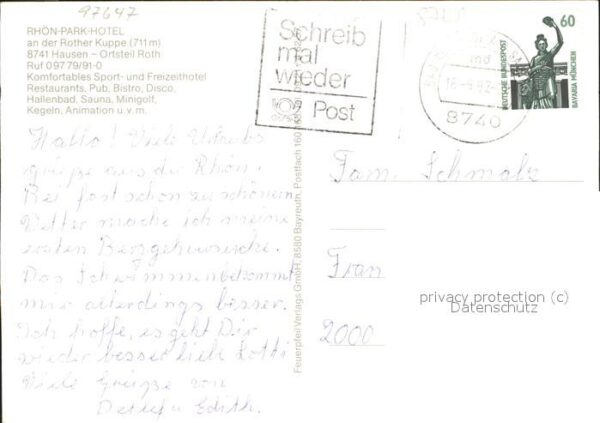 97647
RHÖN-PARK-HOTEL
an der Rother Kuppe (711 m)
8741 Hausen – Ortsteil Roth
Ruf 0 97 79/91-0
Komfortables Sport- und Freizeithotel
Restaurants, Pub, Bistro, Disco,
Hallenbad, Sauna, Minigolf,
Kegeln, Animation u.v.m.
Hallo! Viele Urlaubs
grüße aus der Rhön.
Bei fast schon zu schönem
Wetter mache ich meine
ersten Berg
Das Schwimmen bekommt
mir allerdings besser.
Ich hoffe, es geht Dir
wieder besser liebe Lotti
Viele Grüsse von
Detlef u Edith.
Feuerpfeil Verlags GmbH, 8580 Bayreuth, Postfach 160
Schreib
mal
wieder
Post
8740
60
DEUTSCHE BUNDESPOST
BAVARIA MÜNCHEN
Fam. Schmalz
Fran
2000
privacy protection (c)
Datenschutz